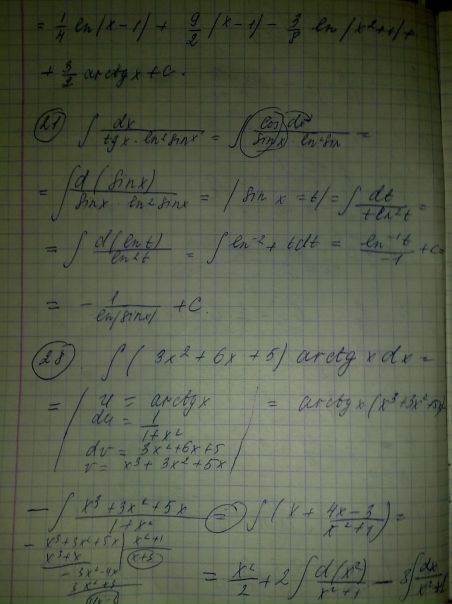 = 1/4 ln|x-1| + 9/2 |x-1| - 3/8 ln|x²+1| +
+ 3/2 arctg x + c.
21 ∫ dx/(tg x · ln² sin x) = ∫ cos dx/(sin x) ln² sin =
= ∫ d(sin x)/(sin x · ln² sin x) = | sin x = t | = ∫ dt/(t ln² t) =
= ∫ d(ln t)/(ln² t) = ∫ ln⁻² t dt = ln⁻¹ t/(-1) + c =
= - 1/(ln|sin x|) + c.
28 ∫ (3x² + 6x + 5) arctg x dx =
= | u = arctg x = arctg x (x³+3x²+5x)
du = 1/(1+x²)
dv = 3x²+6x+5
v = x³+3x²+5x |
- ∫ (x³+3x²+5x)/(1+x²) = ∫ (x + (4x-3)/(x²+1) =
- x³+3x²+5x | x²+1
x³+x | x+3
- 3x²-4x
= x²/2 + 2 ∫ d(x²)/(x²+1) - 3 ∫ dx/(x²+1)